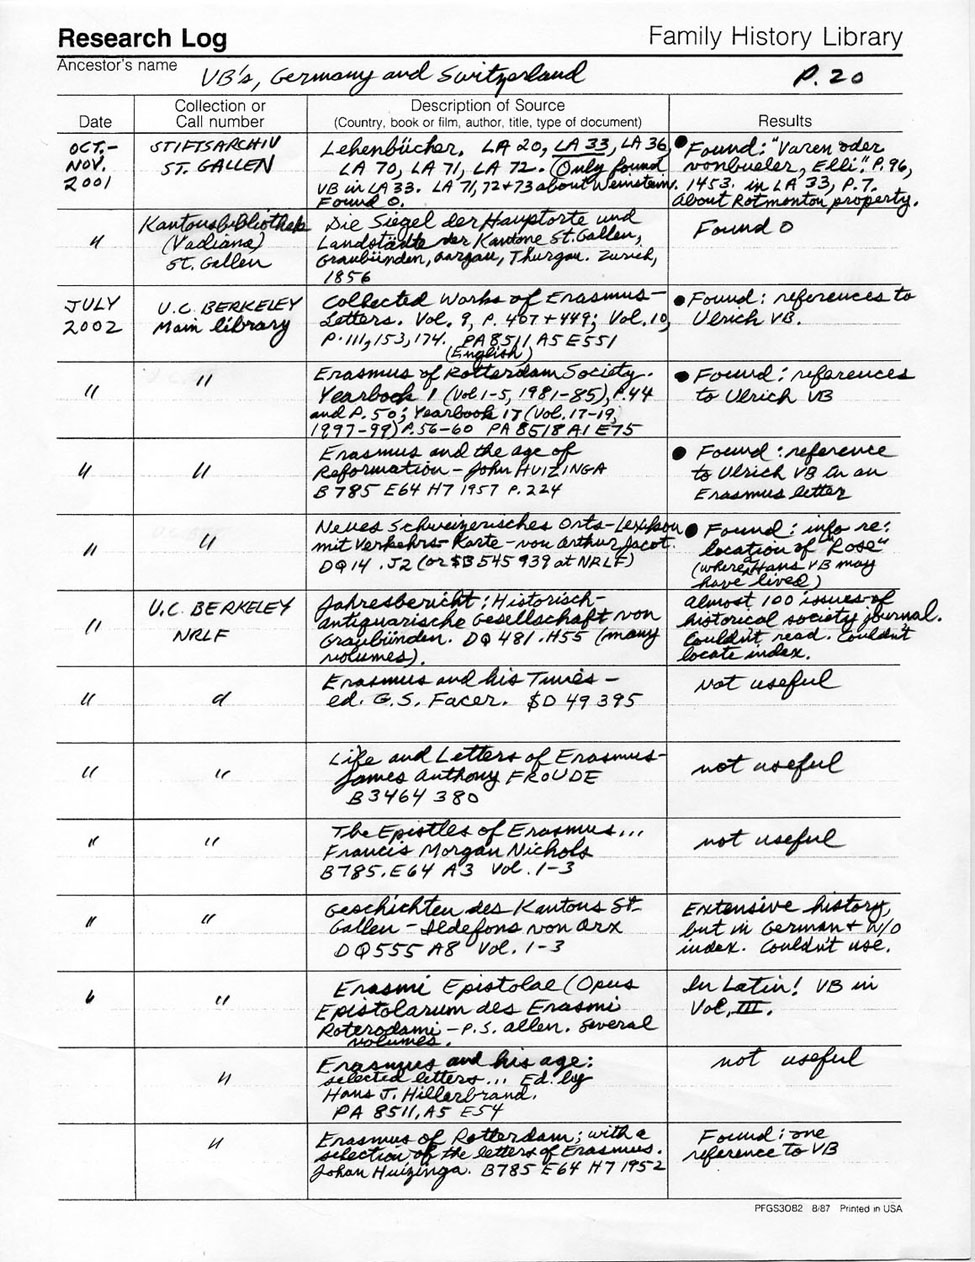 Research Log
Family History Library
Ancestor's name
VB's, Germany and Switzerland
P. 20
Date
Collection or
Call number
Description of Source
(Country, book or film, author, title, type of document)
Results
OCT.-
NOV.
2001
STIFTSARCHIV
ST. GALLEN
Lehenbücher. LA 20, LA 33, LA 36,
LA 70, LA 71, LA 72. (Only found
VB in LA 33. LA 71, 72+73 about Weinstein.
Found 0.
Found: "Varen oder
vonbueler, Elli". P. 96,
1453. in LA 33, P. 7.
About Rotmonton property.
"
Kantonsbibliothek
(Vadiana)
St. Gallen
Die Siegel der Hauptorte und
Landstädte der Kantone St. Gallen,
Graubünden, Aargau, Thurgau. Zurich,
1856
Found 0
JULY
2002
U.C. BERKELEY
Main library
Collected Works of Erasmus-
Letters. Vol. 9, P. 407+449; Vol. 10,
P. 111, 153, 174. PA 8511 A5 E551
(English)
Found: references to
Ulrich VB.
"
"
Erasmus of Rotterdam Society.
Yearbook 1 (Vol 1-5, 1981-85), P. 44
and P. 50; Yearbook 17 (Vol. 17-19,
1997-99) P. 56-60 PA 8518 A1 E75
Found: references
to Ulrich VB
"
"
Erasmus and the age of
Reformation - John HUIZINGA
B785 E64 H7 1957 P. 224
Found: reference
to Ulrich VB in an
Erasmus letter
"
"
Neues Schweizerisches Orts-Lexikon
mit Verkehrs-Karte - von Arthur Jacot.
DQ14 .J2 (or $B 545 939 at NRLF)
Found: info re:
location of "Rose"
(where Hans VB may
have lived)
"
U.C. BERKELEY
NRLF
Jahresbericht: Historisch-
antiquarische Gesellschaft von
Graubünden. DQ 481 .H55 (many
volumes).
Almost 100 issues of
historical society journal.
Couldn't read. Couldn't
locate index.
"
"
Erasmus and his Times -
ed. G.S. Facer. $D 49 395
Not useful
"
"
Life and Letters of Erasmus-
James Anthony FROUDE
B3464 380
not useful
"
"
The Epistles of Erasmus...
Francis Morgan Nichols
B785.E64 A3 Vol. 1-3
not useful
"
"
Geschichten des Kantons St.
Gallen - Ildefons von Arx
DQ555 A8 Vol. 1-3
Extensive history,
but in German + W/O
index. Couldn't use.
"
"
Erasmi Epistolae (Opus
Epistolarum des Erasmi
Roterodami - P.S. Allen. Several
volumes.
In Latin! VB in
Vol. III.
"
Erasmus and his age:
selected letters... Ed. by
Hans J. Hillerbrand.
PA 8511, A5 E54
not useful
"
Erasmus of Rotterdam; with a
selection of the letters of Erasmus.
Johan Huizinga. B785 E64 H7 1952
Found: one
reference to VB
PFGS3082 8/87 Printed in USA